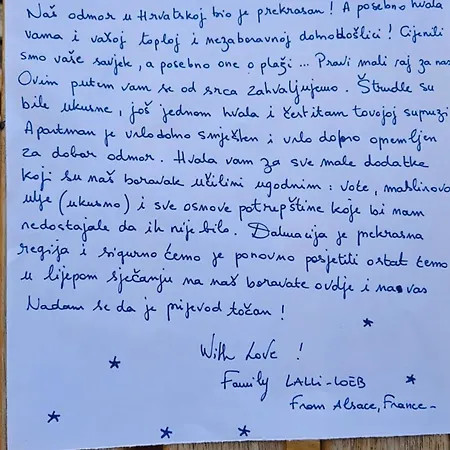 Naš odmor u Hrvatskoj bio je prekrasan! A posebno hvala
vama i vašoj toploj i nezaboravnoj dobrodošlici! Cijenili
smo vaše savjek, a posebno one o plaži... Pravi mali raj za nas
Ovim putem vam se od srca zahvaljujemo. Štrudle su
bile ukusne, još jednom hvala i čestitam tovojoj supruzi
Apartman je vrlo dobro smješten i vrlo dobro opremljen
za dobar odmor. Hvala vam za sve male dodatke
koji su naš boravak učilini ugodnim: voće, maslinovo
ulje (ukusno) i sve osnove potrepštine koje bi nam
nedostajale da ih nije bilo. Dalmacija je prekrasna
regija i sigurno ćemo je ponovno posjetili ostat ćemo
u lijepom sjećanju na naš boravate ovdje i na vas
Nadam se da je prijevod točan!
With Love !
Family LALLI-LOEB
From Alsace, France -